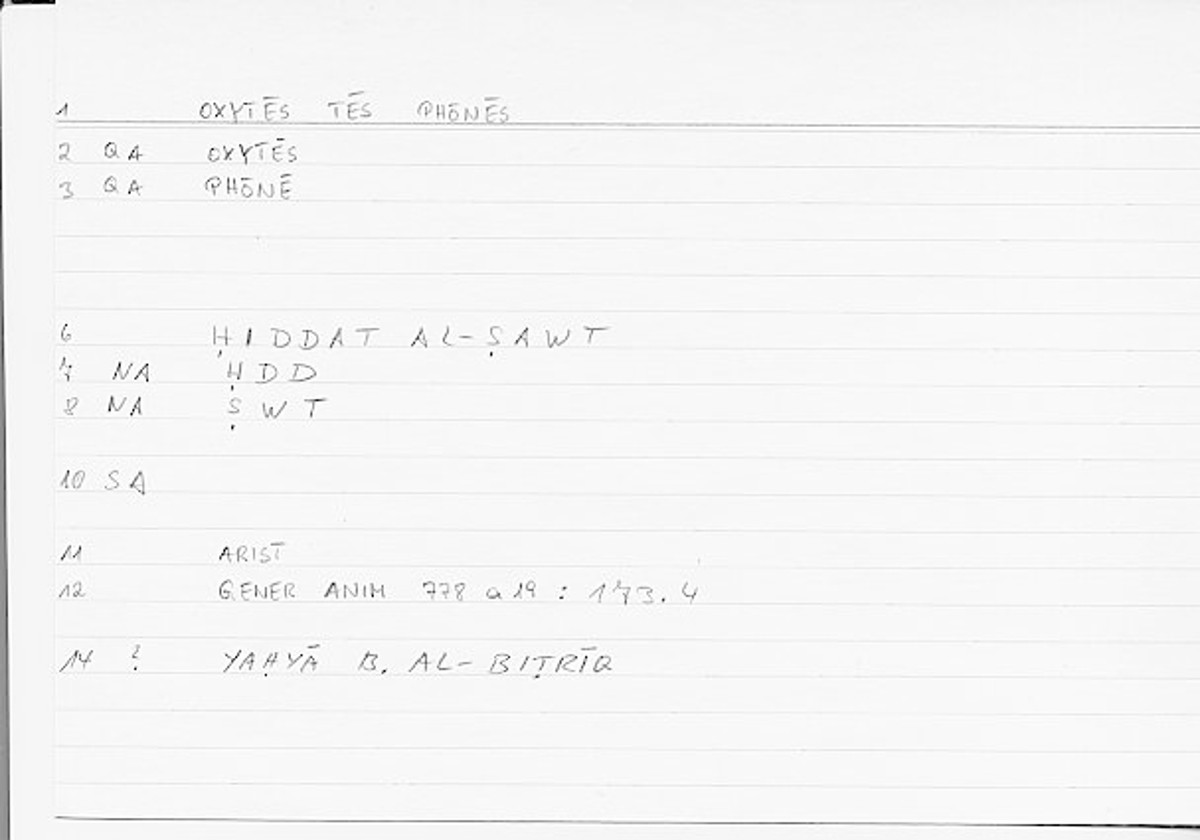 1 OXYTĒS TĒS PHŌNĒS
2 QA OXYTĒS
3 QA PHŌNĒ
6 ḤIDDAT AL-ṢAWT
7 NA ḤDD
8 NA ṢWT
10 SA
11 ARIST
12 GENER ANIM 778 a 19 : 173.4
14 ? YAḤYĀ B. AL-BIṬRĪQ